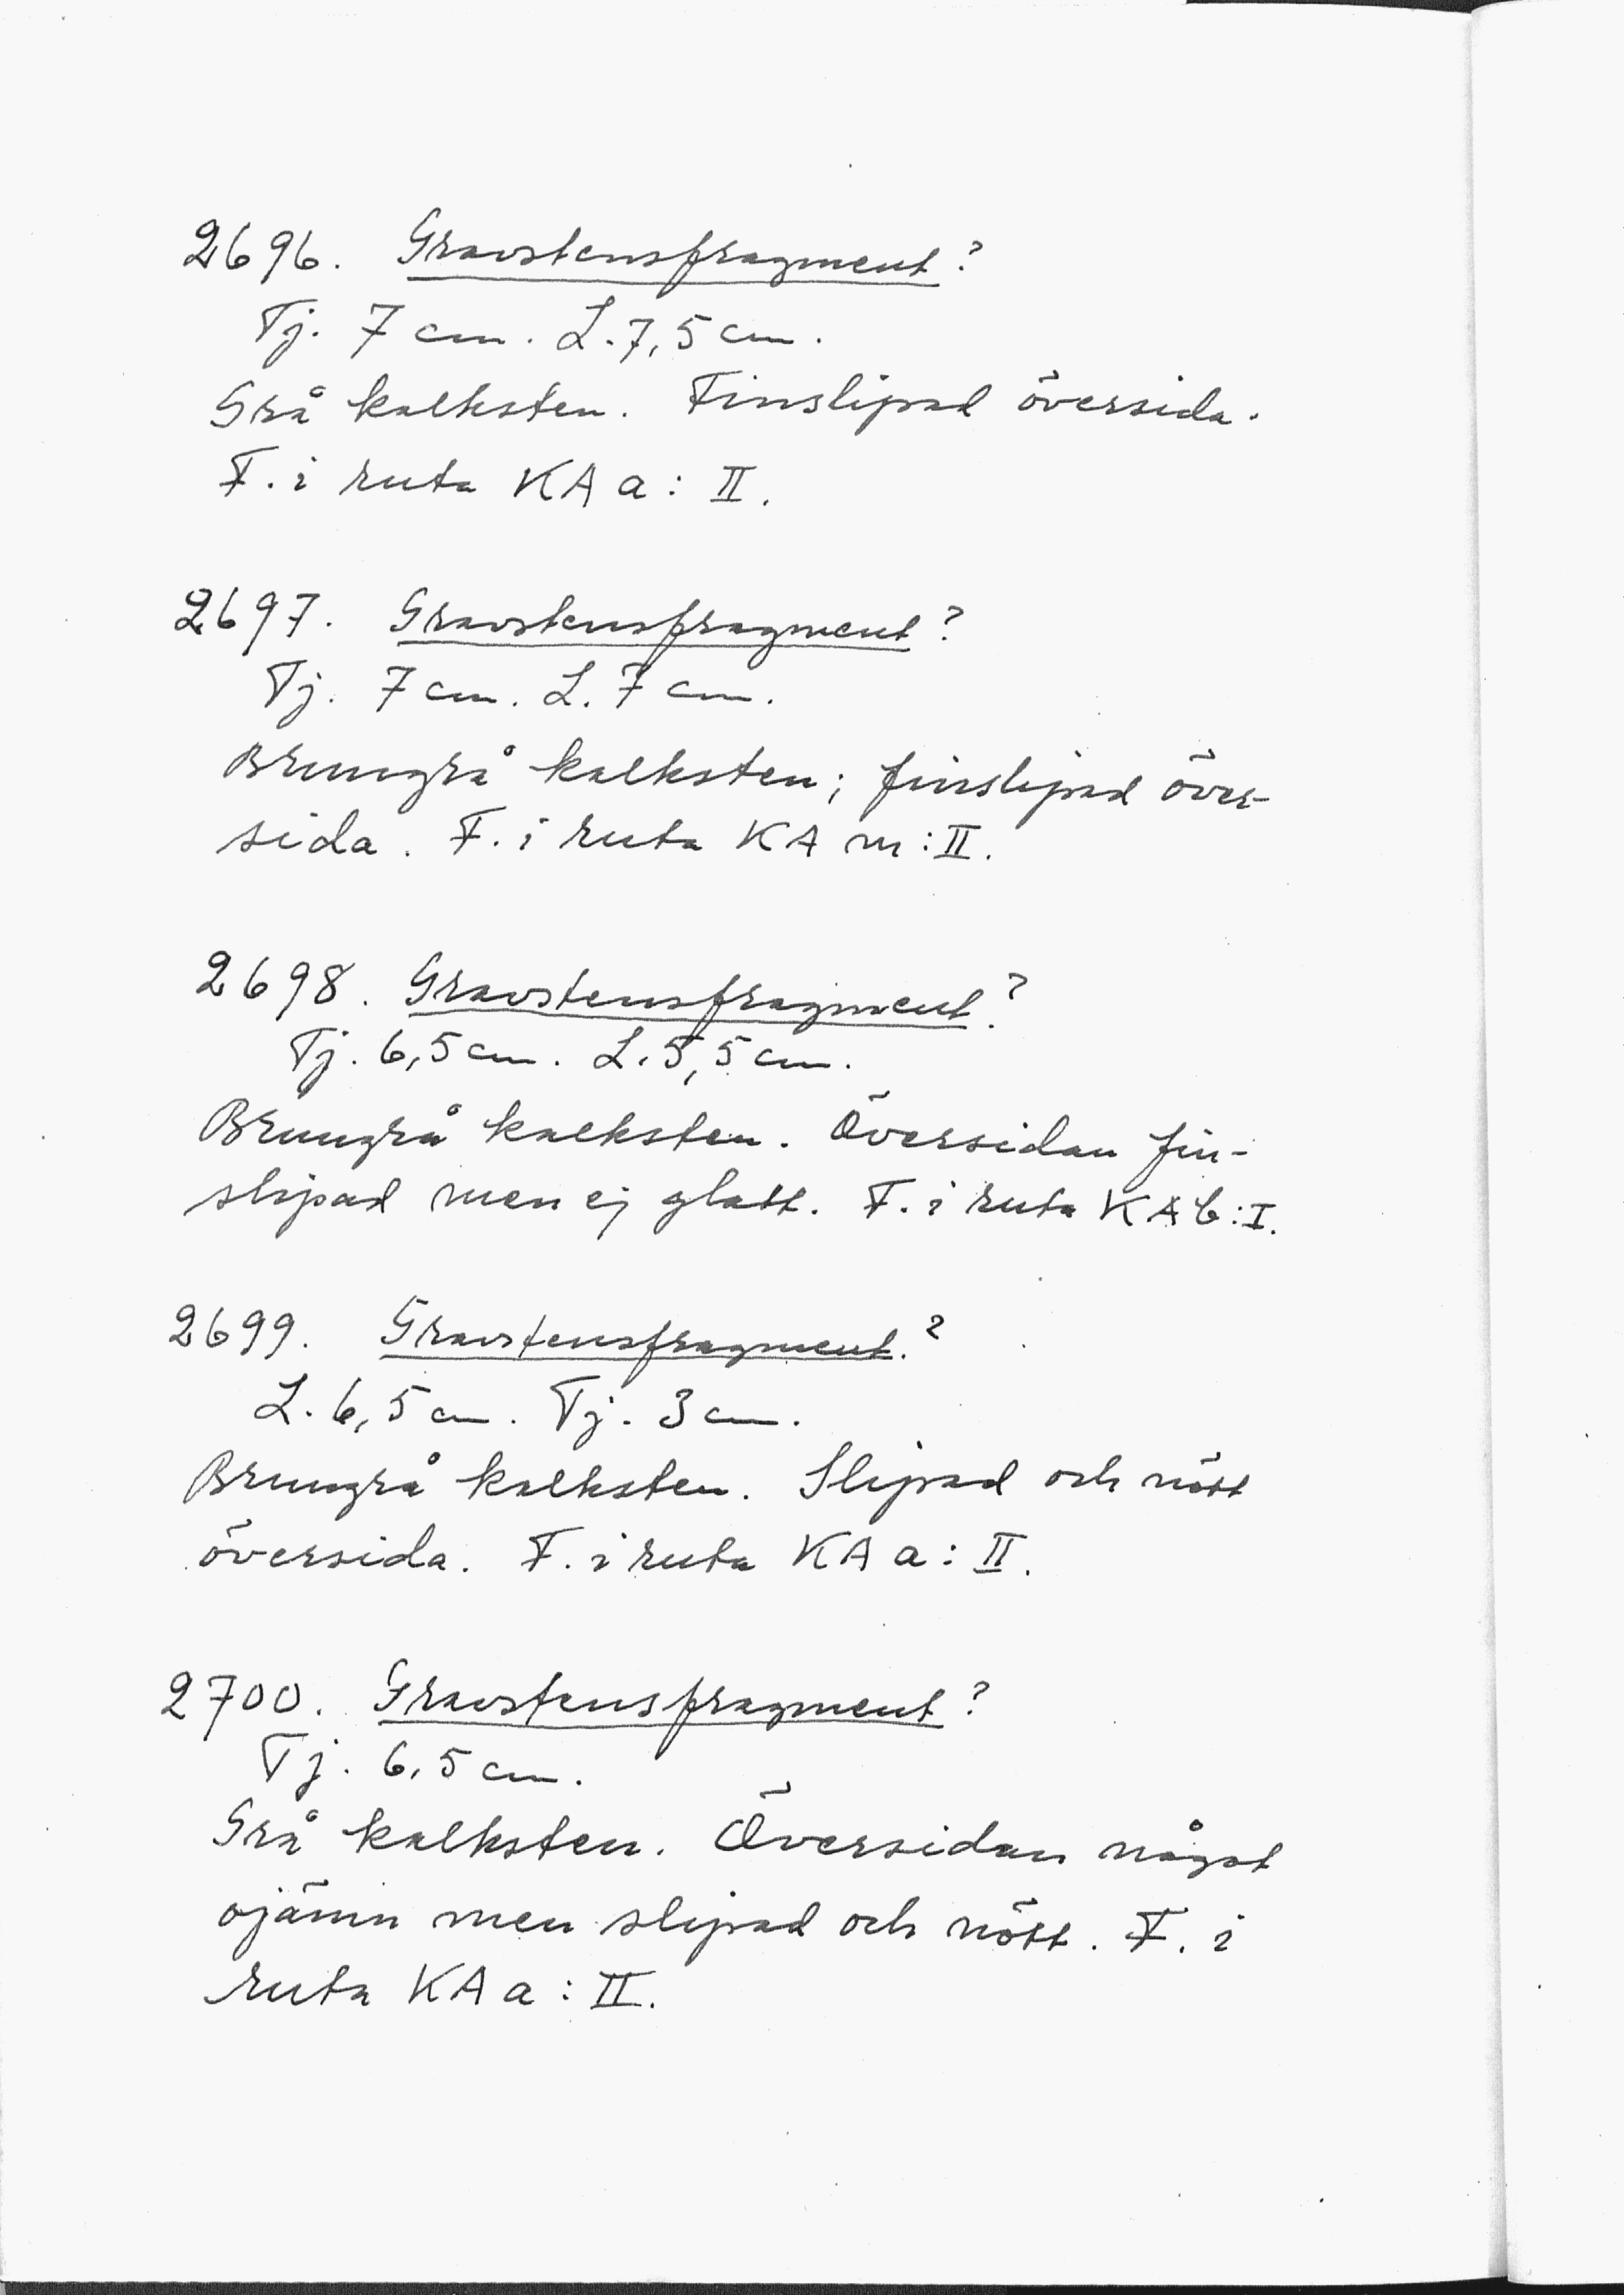 2696. Gravstensfragment?
Tj. 7 cm. L. 7,5 cm.
Grå kalksten. Finslipad översida.
F. i ruta KA a: II.
2697. Gravstensfragment?
Tj. 7 cm. L. 7 cm.
Brungrå kalksten; finslipad över-
sida. F. i ruta KA m: II.
2698. Gravstensfragment?
Tj. 6,5 cm. L. 5,5 cm.
Brungrå kalksten. Översidan fin-
slipad men ej glatt. F. i ruta KA b: I.
2699. Gravstensfragment.?
L. 6,5 cm. Tj. 3 cm.
Brungrå kalksten. Slipad och nött
översida. F. i ruta KA a: II.
2700. Gravstensfragment?
Tj. 6,5 cm.
Grå kalksten. Översidan något
ojämn men slipad och nött. F. i
ruta KA a: II.